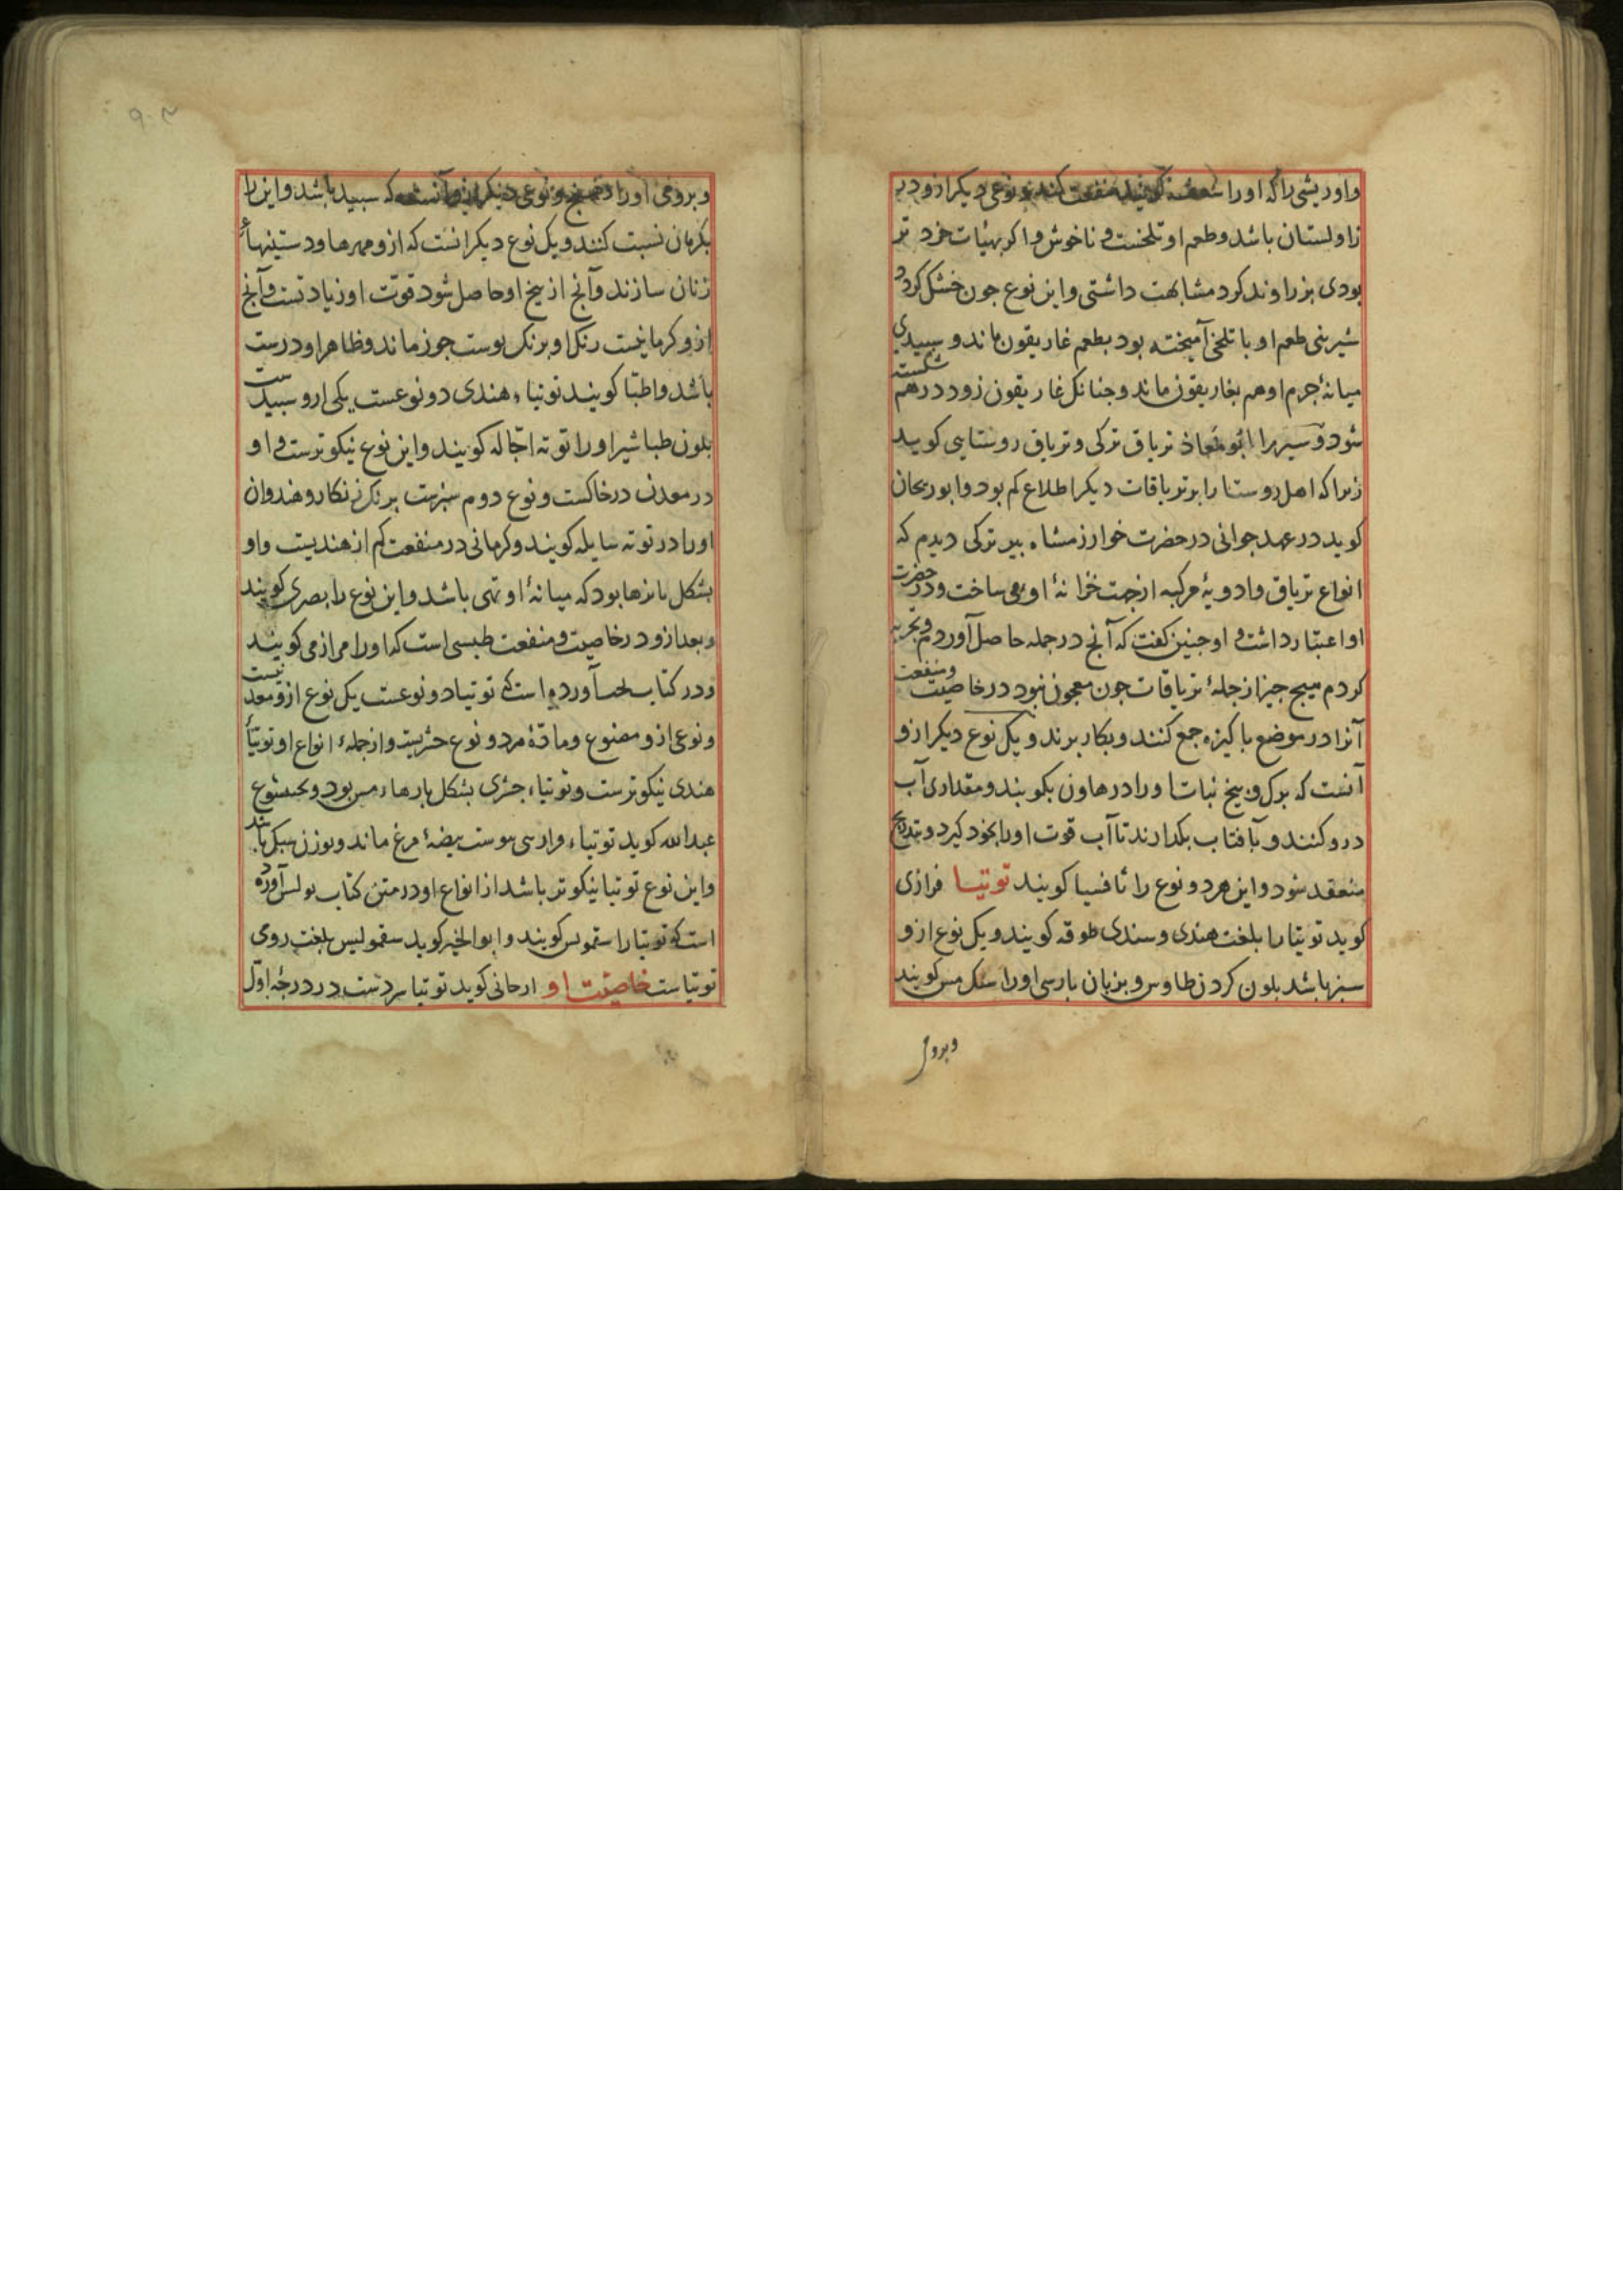 واو ریشی را که او را سعفه کویند منفعت کند و نوعی دیکر ازو در
زاولستان باشد و طعم او تلخست و ناخوش و اکر بهیٔات خرد تر
بودی بزراوند کرد مشابهت داشتی و این نوع جون خشک کردد
شیرینی طعم او با تلخی آمیخته بود بطعم غاریقون ماند و سبیدی
میانهٔ جرم او هم بغاریقون ماند و جنانک غاریقون زود درهم شکسته
شود و سیر را ابو معاذ تریاق ترکی و تریاق روستایی کوید
زیرا که اهل روستا را بر تریاقات دیکر اطلاع کم بود و ابو ریحان
کوید در عهد جوانی در حضرت خوارزمشاه بیر ترکی دیدم که
انواع تریاق و ادویهٔ مرکبه از جهت خزانهٔ او می ساخت و در حضرت
او اعتبار داشت و او جنین کفت که آنج در جمله حاصل آوردم و تجربه
کردم هیج جیز از جملهٔ تریاقات جون معجون نبود در خاصیت و منفعت
آنرا در موضع باکیزه جمع کنند و بکار برند و یک نوع دیکر ازو
آنست که برک و بیخ نبات او را در هاون بکوبند و مقداری آب
درو کنند و بآفتاب بکدارند تا آب قوت او را بخود کیرد و بتدریج
منعقد شود و این هر دو نوع را ثافسیا کویند توتیا فزاری
کوید توتیا را بلغت هندی و سندی طوقه کویند و یک نوع ازو
سبز باشد بلون کردن طاوس و بزبان بارسی او را سنک مس کویند
وبرومی
وبرومی او را و نوعی دیکر ازو آنست که سبید باشد و این را
بکرمان نسبت کنند و یک نوع دیکر انست که ازو مهرها و دستینهاء
زنان سازند و آنج از بیخ او حاصل شود قوت او زیادتست و آنج
ازو کرمانیست رنک او برنک بوست جوز ماند و ظاهر او درست
باشد و اطبا کویند توتیاء هندی دو نوعست یکی ازو سبیدست
بلون طباشیر او را توته اجاله کویند و این نوع نیکوترست و او
در معدن در خاکست و نوع دوم سبزست برنک زنکار و هندوان
او را در توته سایله کویند و کرمانی در منفعت کم از هندیست و او
بشکل نایزها بود که میانهٔ او تهی باشد و این نوع را بصری کویند
و بعد ازو در خاصیت و منفعت طبسی است که او را مرازمی کویند
و در کتاب آورده است که توتیا دو نوعست یک نوع ازو معدنیست
و نوعی ازو مصنوع و مادهٔ هر دو نوع و از جملهٔ انواع او توتیاء
هندی نیکوترست و توتیاء بشکل بارهاء مس بود و
عبدالله کوید توتیاء ببوست بیضهٔ مرغ ماند و بوزن سبک باشد
و این نوع توتیا نیکوتر باشد از انواع او در متن کتاب بولس آورده
است که توتیا را سقمولس کویند و ابو الخیر کوید سقمولیس بلغت رومی
توتیاست خاصیت او ارجانی کوید توتیا سردست در درجهٔ اول